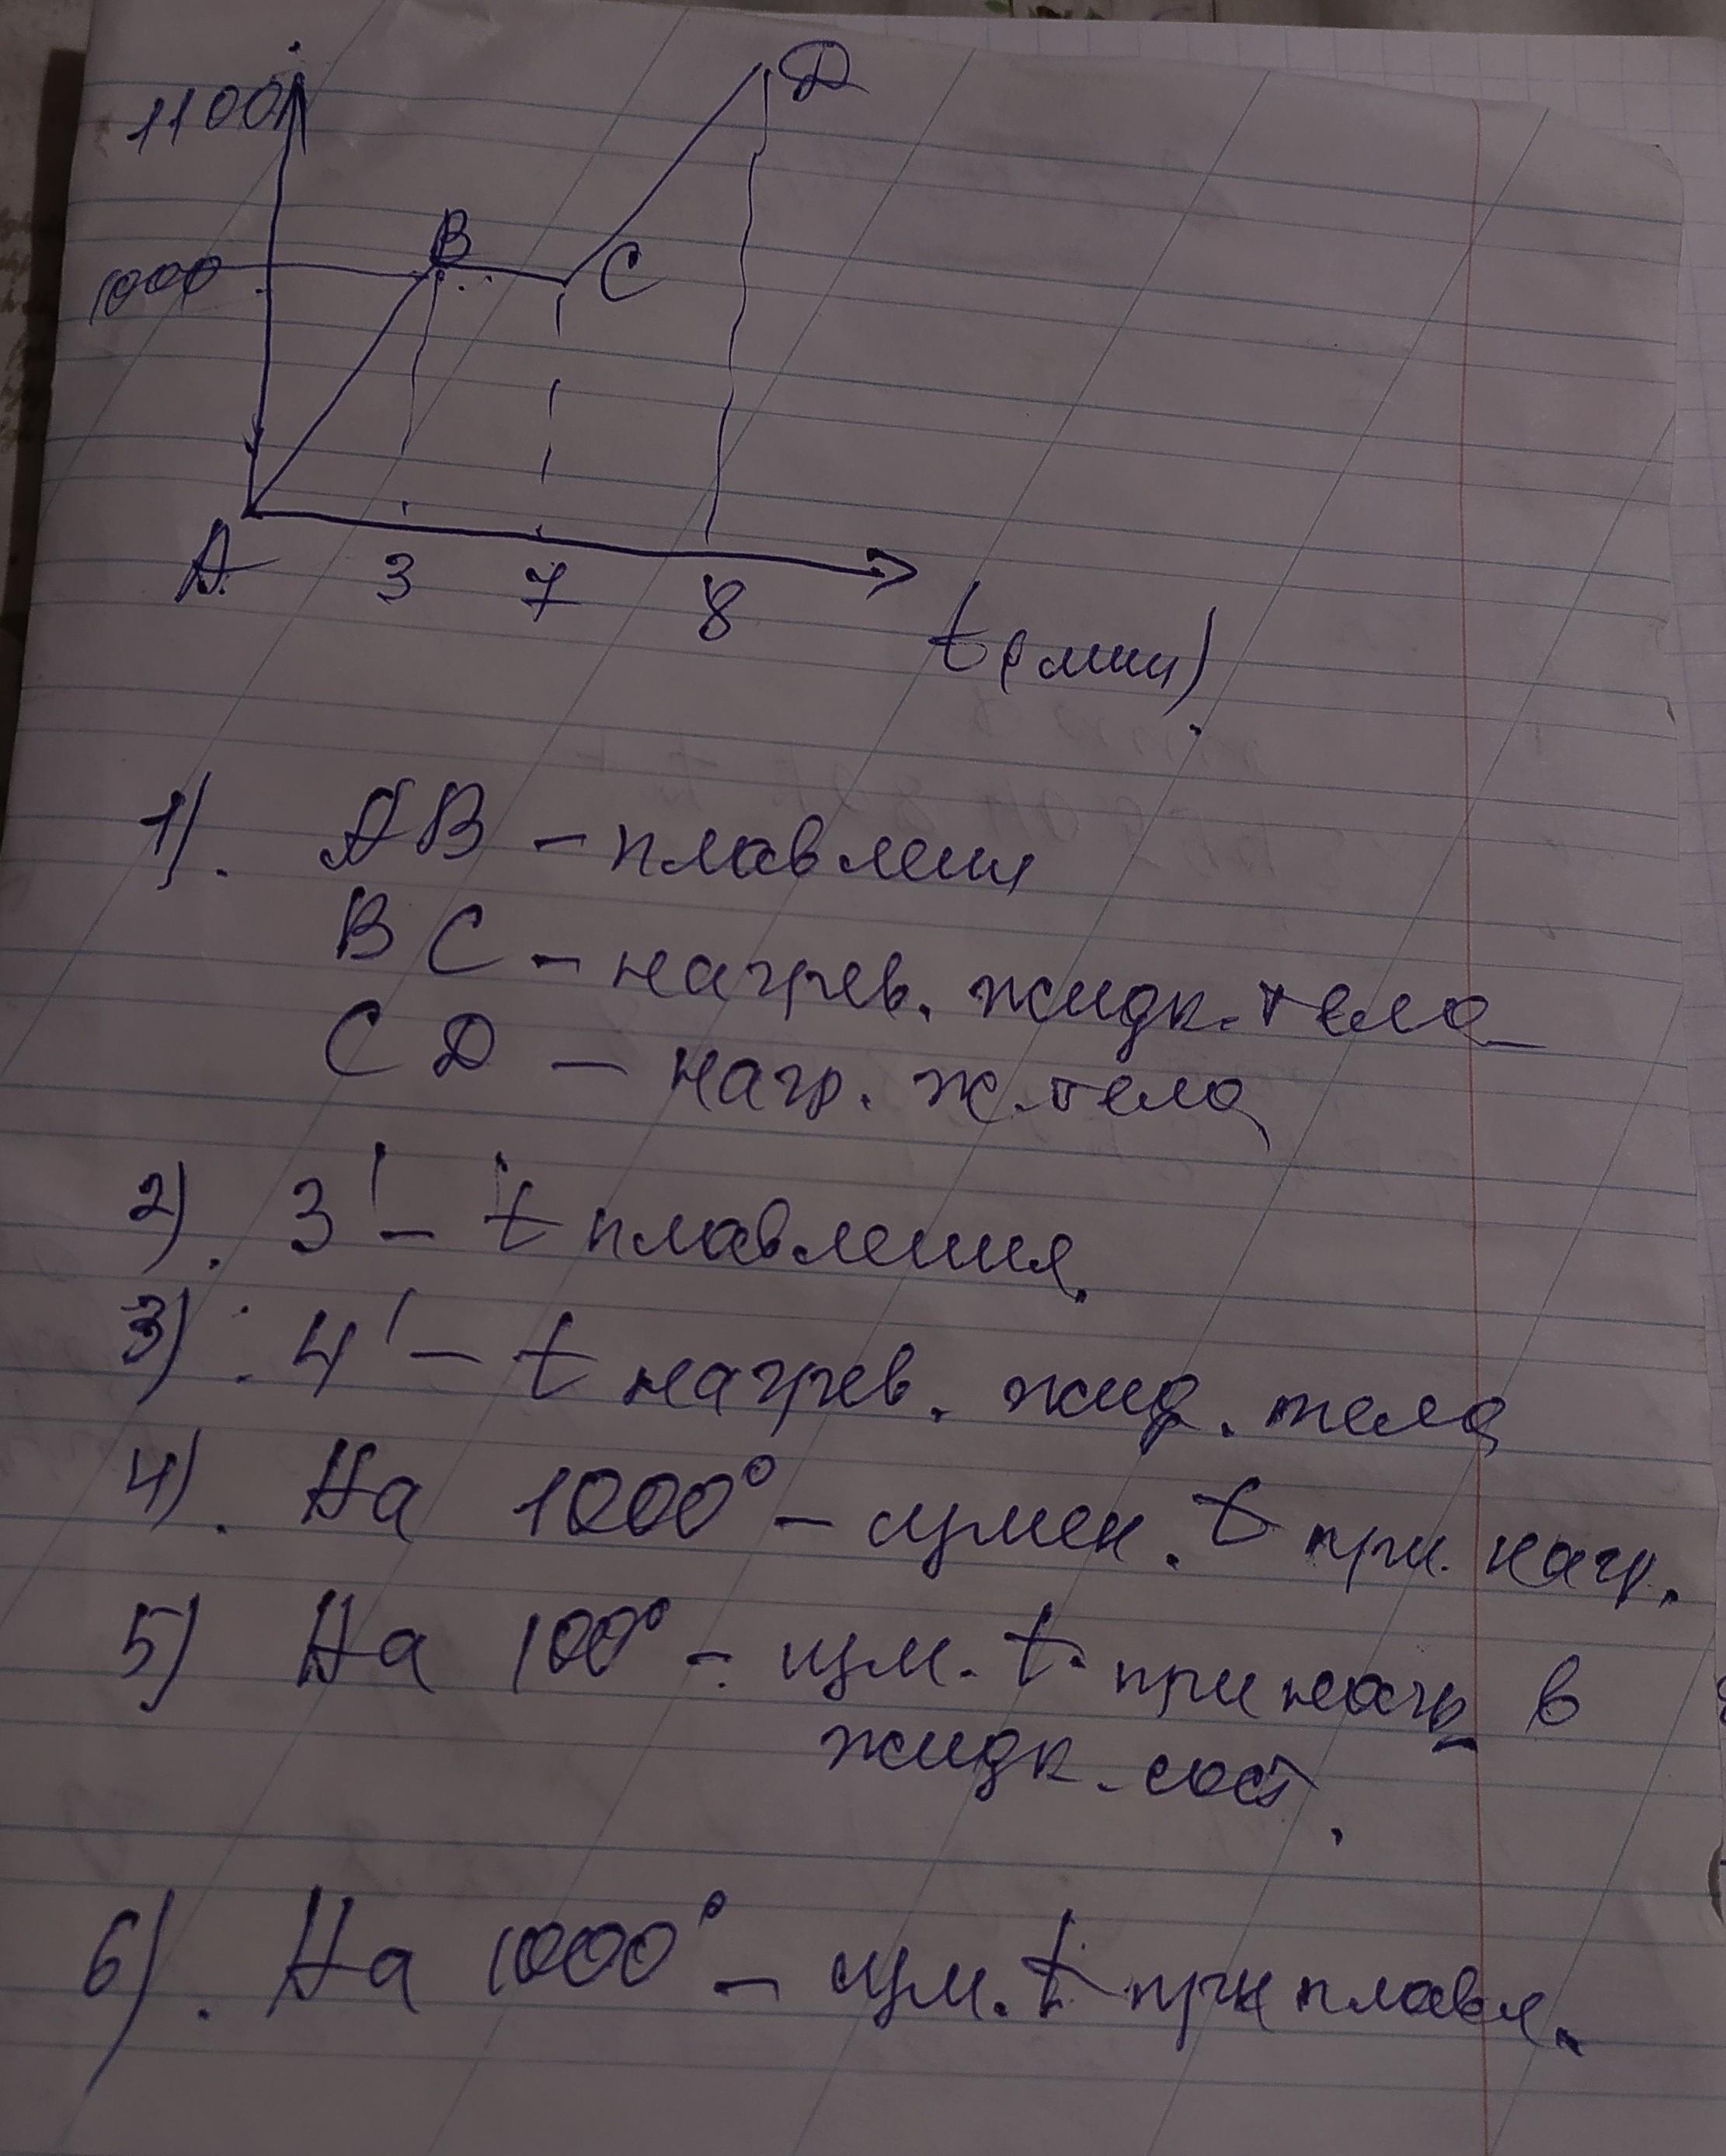 1100
D
B
1000
C
A
3 7 8
t (мин)
1). AB – плавлени
BC – нагрев. жидк. тела
CD – нагр. ж. тела
2). 3' – t плавления.
3). 4' – t нагрев. жид. тела
4). На 1000° – измен. t при. нагр.
5) На 100° – изм. t. при нагр в
жидк. сост.
6). На 1000° – изм. t при плавл.